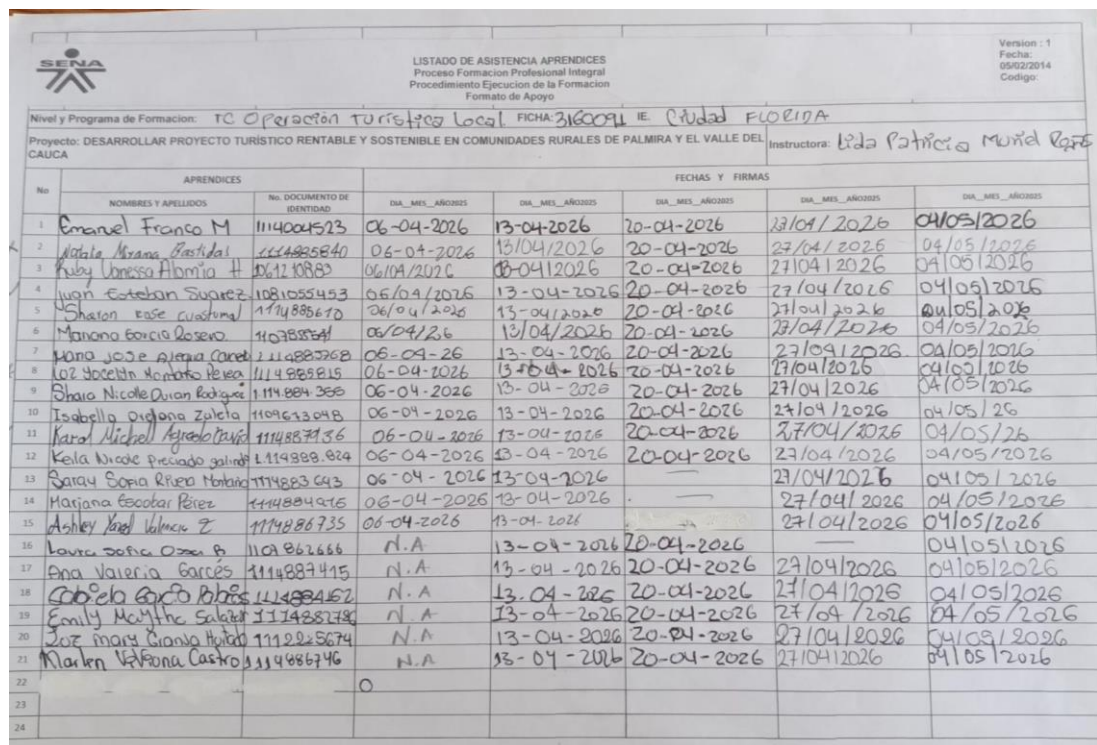 SENA
LISTADO DE ASISTENCIA APRENDICES
Proceso Formacion Profesional Integral
Procedimiento Ejecucion de la Formacion
Formato de Apoyo
Version : 1
Fecha:
05/02/2014
Codigo:
Nivel y Programa de Formacion: TC Operación Turística Local FICHA: 3160091 IE. Ciudad FLORIDA
Proyecto: DESARROLLAR PROYECTO TURÍSTICO RENTABLE Y SOSTENIBLE EN COMUNIDADES RURALES DE PALMIRA Y EL VALLE DEL CAUCA Instructora: Lida Patricia Muriel
No APRENDICES FECHAS Y FIRMAS
NOMBRES Y APELLIDOS No. DOCUMENTO DE IDENTIDAD DIA__MES__AÑO2025 DIA__MES__AÑO2025 DIA__MES__AÑO2025 DIA__MES__AÑO2025 DIA__MES__AÑO2025
1 Emanuel Franco M 1114004523 06-04-2026 13-04-2026 20-04-2026 27/04/2026 04/05/2026
2 Natalia Bastidas 1114885840 06-04-2026 13/04/2026 20-04-2026 27/04/2026 04/05/2026
3 Ruby Vanessa Alomia H 1061210883 06/04/2026 13-04/2026 20-04-2026 27/04/2026 04/05/2026
4 Juan Esteban Suarez 1081055453 06/04/2026 13-04-2026 20-04-2026 27/04/2026 04/05/2026
5 Sharon rose 1114885610 06/04/2026 13-04/2026 20-04-2026 27/04/2026 04/05/2026
6 Mariana Garcia Rosero 06/04/26 13/04/2026 20-04-2026 27/04/2026 04/05/2026
7 Jose 1114885768 06-04-26 13-04-2026 20-04-2026 27/04/2026. 04/05/2026
8 Luz Yocelyn Montaño Perea 1114885815 06-04-2026 13-04-2026 20-04-2026 27/04/2026 04/05/2026
9 Shara Nicolle Duran Rodriguez 1.114.884.355 06-04-2026 13-04-2026 20-04-2026 27/04/2026 04/05/2026
10 Isabella Zuleta 1109633048 06-04-2026 13-04-2026 20-04-2026 27/04/2026 04/05/26
11 Karol Michell Agredo 1114887936 06-04-2026 13-04-2026 20-04-2026 27/04/2026 04/05/26
12 Keila Nicole Preciado galindo 1.114888.824 06-04-2026 13-04-2026 20-04-2026 27/04/2026 04/05/2026
13 Saray Sofia Rivera Montaño 1114883643 06-04-2026 13-04-2026 — 27/04/2026 04/05/2026
14 Mariana Escobar Pérez 06-04-2026 13-04-2026 — 27/04/2026 04/05/2026
15 Ashley Yarel Valencia Z 1114886735 06-04-2026 13-04-2026 27/04/2026 04/05/2026
16 Laura Sofia Ossa B 1107862666 N.A 13-04-2026 20-04-2026 — 04/05/2026
17 Ana Valeria Garcés 1114887415 N.A 13-04-2026 20-04-2026 27/04/2026 04/05/2026
18 1114884162 N.A 13.04-2026 20-04-2026 27/04/2026 04/05/2026
19 Emily Salazar N.A 13-04-2026 20-04-2026 27/04/2026 04/05/2026
20 Luz mary Hurtado 1112225674 N.A 13-04-2026 20-04-2026 27/04/2026 04/05/2026
21 Marlen Castro 1114886746 N.A 13-04-2026 20-04-2026 27/04/2026 04/05/2026
22
23
24